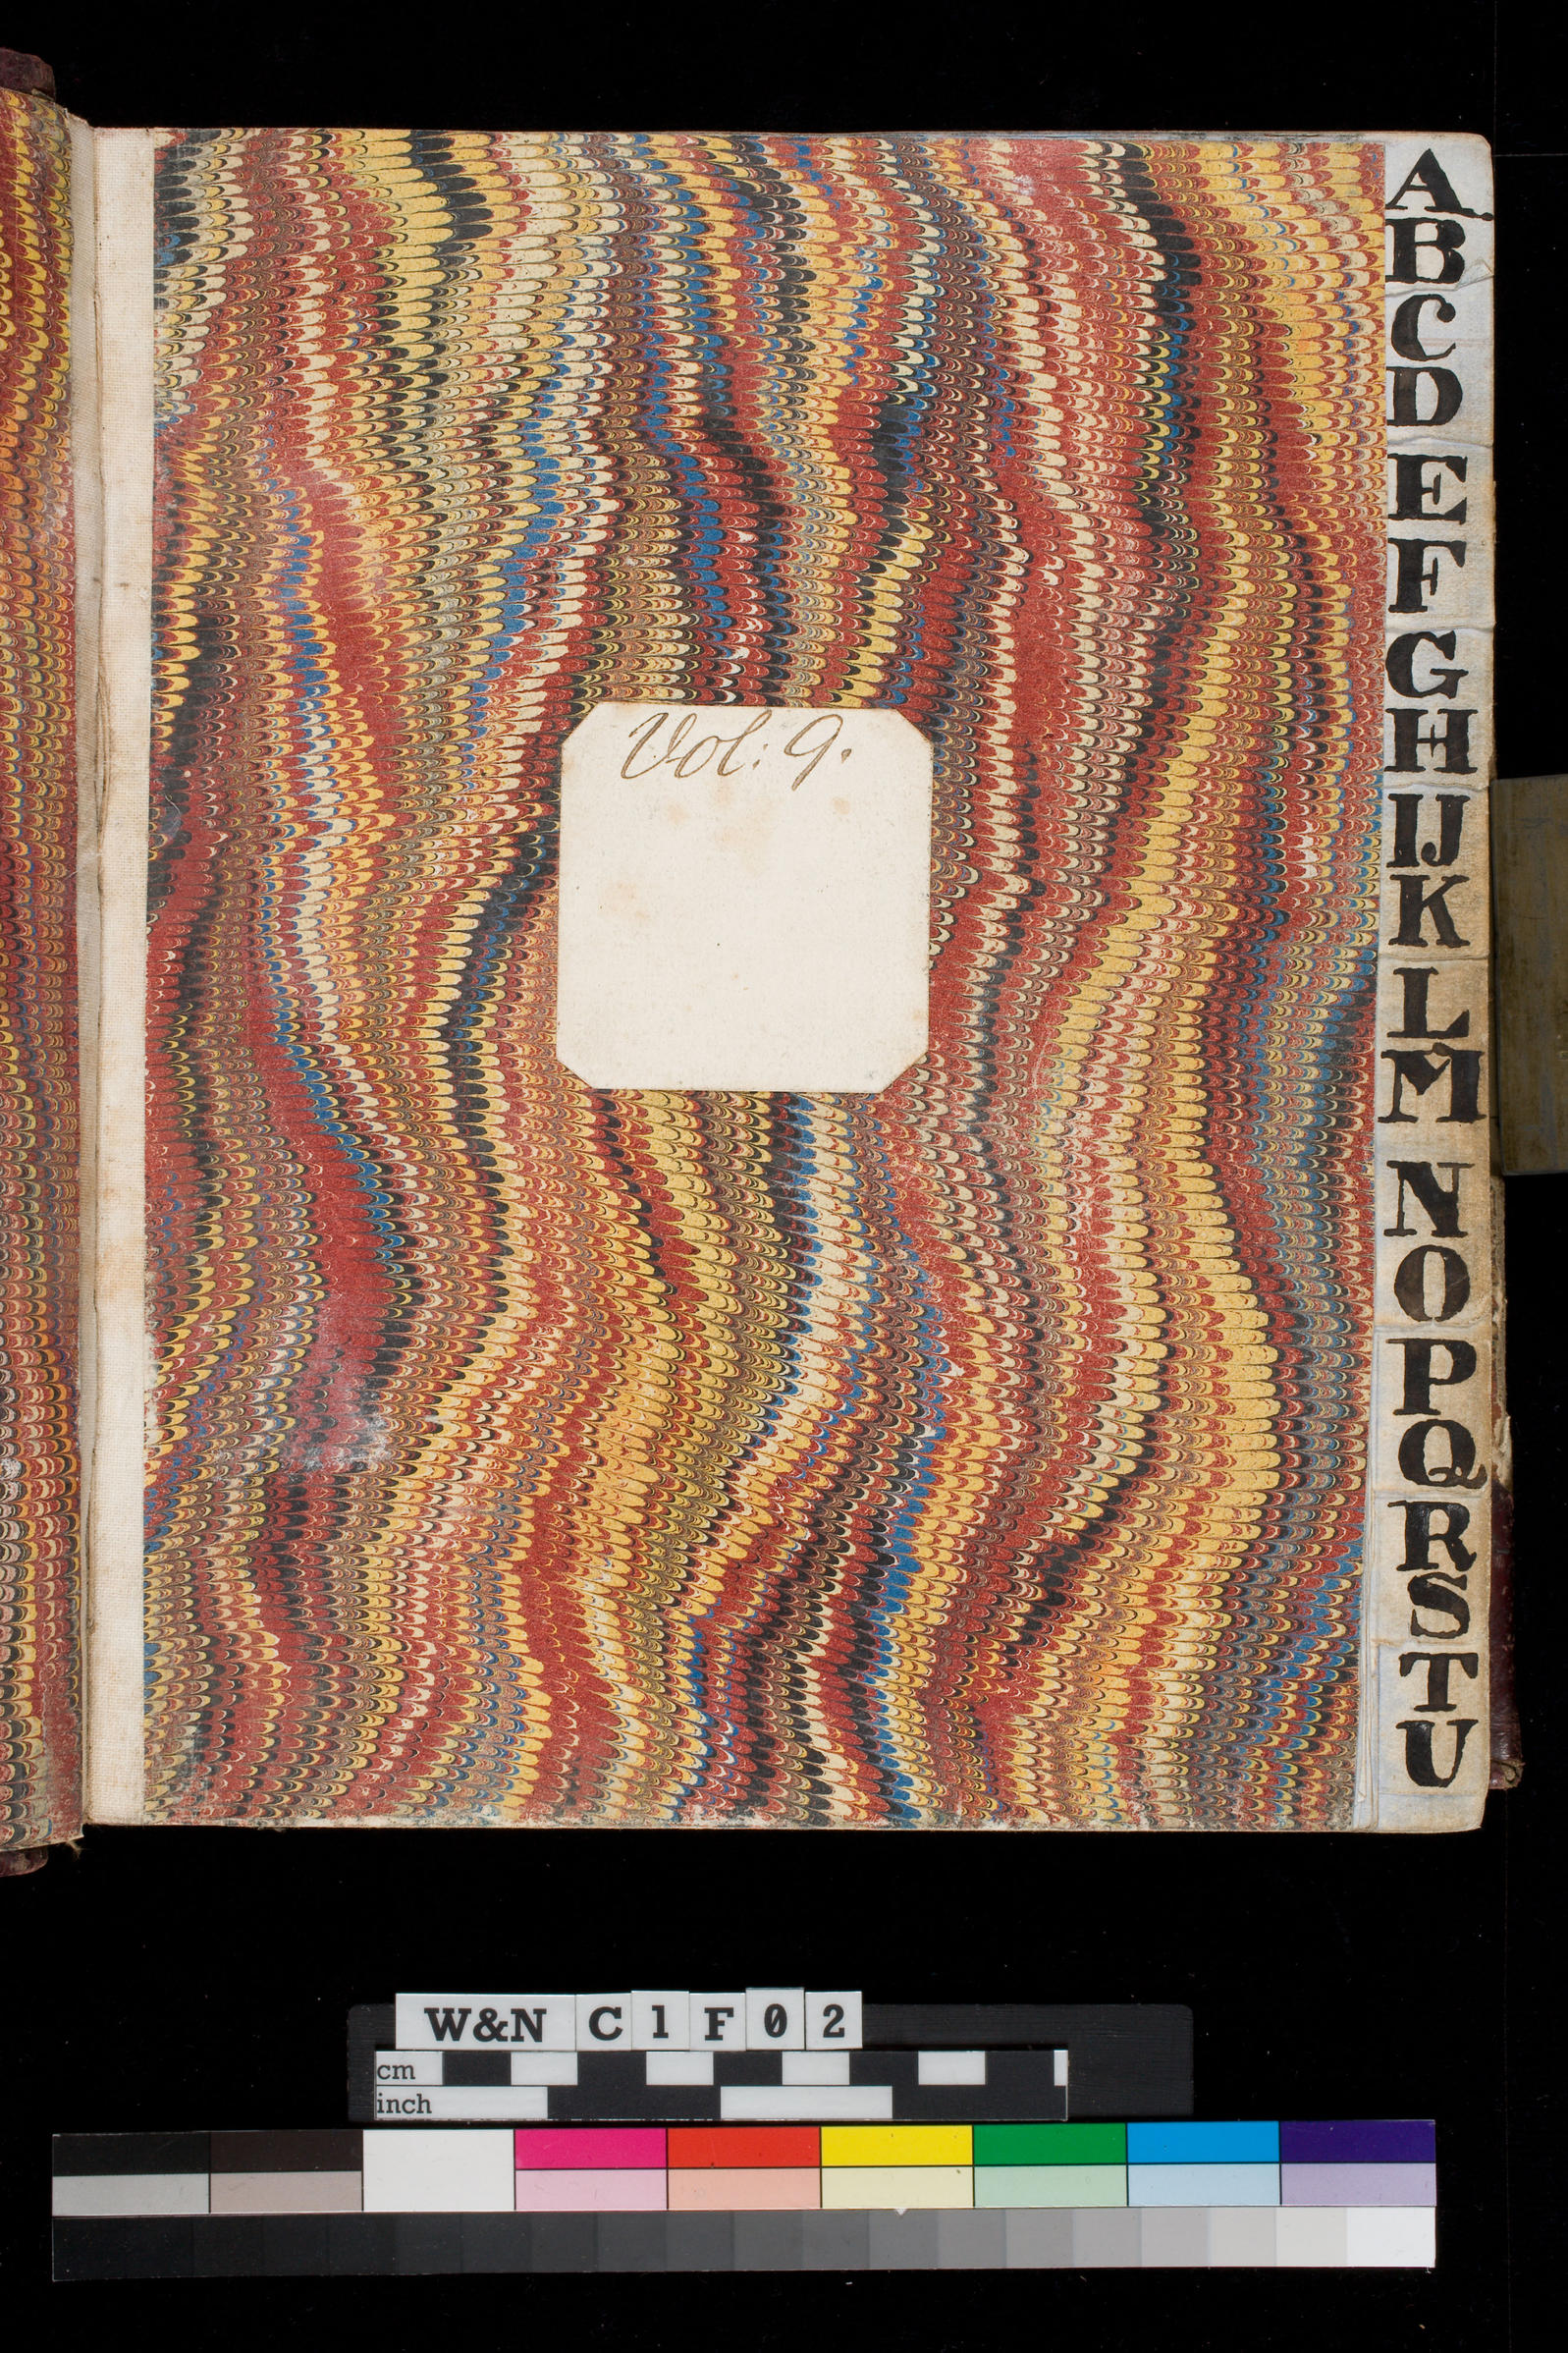 Vol: 9.
A
B
C
D
E
F
G
H
IJ
K
L
M
N
O
P
Q
R
S
T
U
W&N C1F02
cm
inch